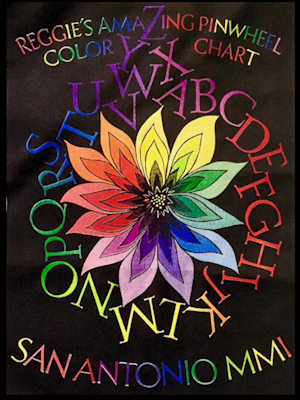 REGGIE'S AMAZING PINWHEEL
COLOR CHART
ABCDEFGHIJKLMNOPQRSTUVWXYZ
SAN ANTONIO MMI